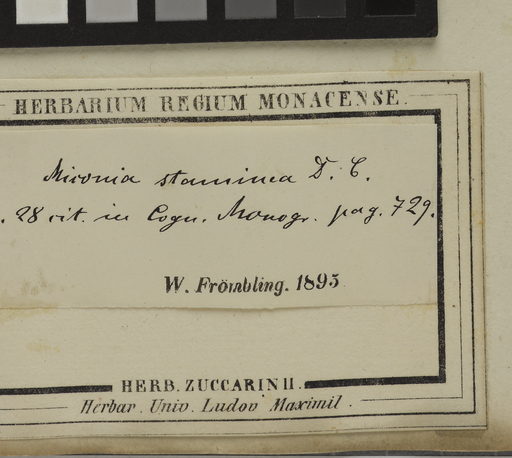 HERBARIUM REGIUM MONACENSE.
Miconia staminea D. C.
. 28 cit. in Cogn. Monogr. pag. 729.
W. Frömbling. 1895
HERB. ZUCCARINII.
Herbar. Univ. Ludov Maximil.